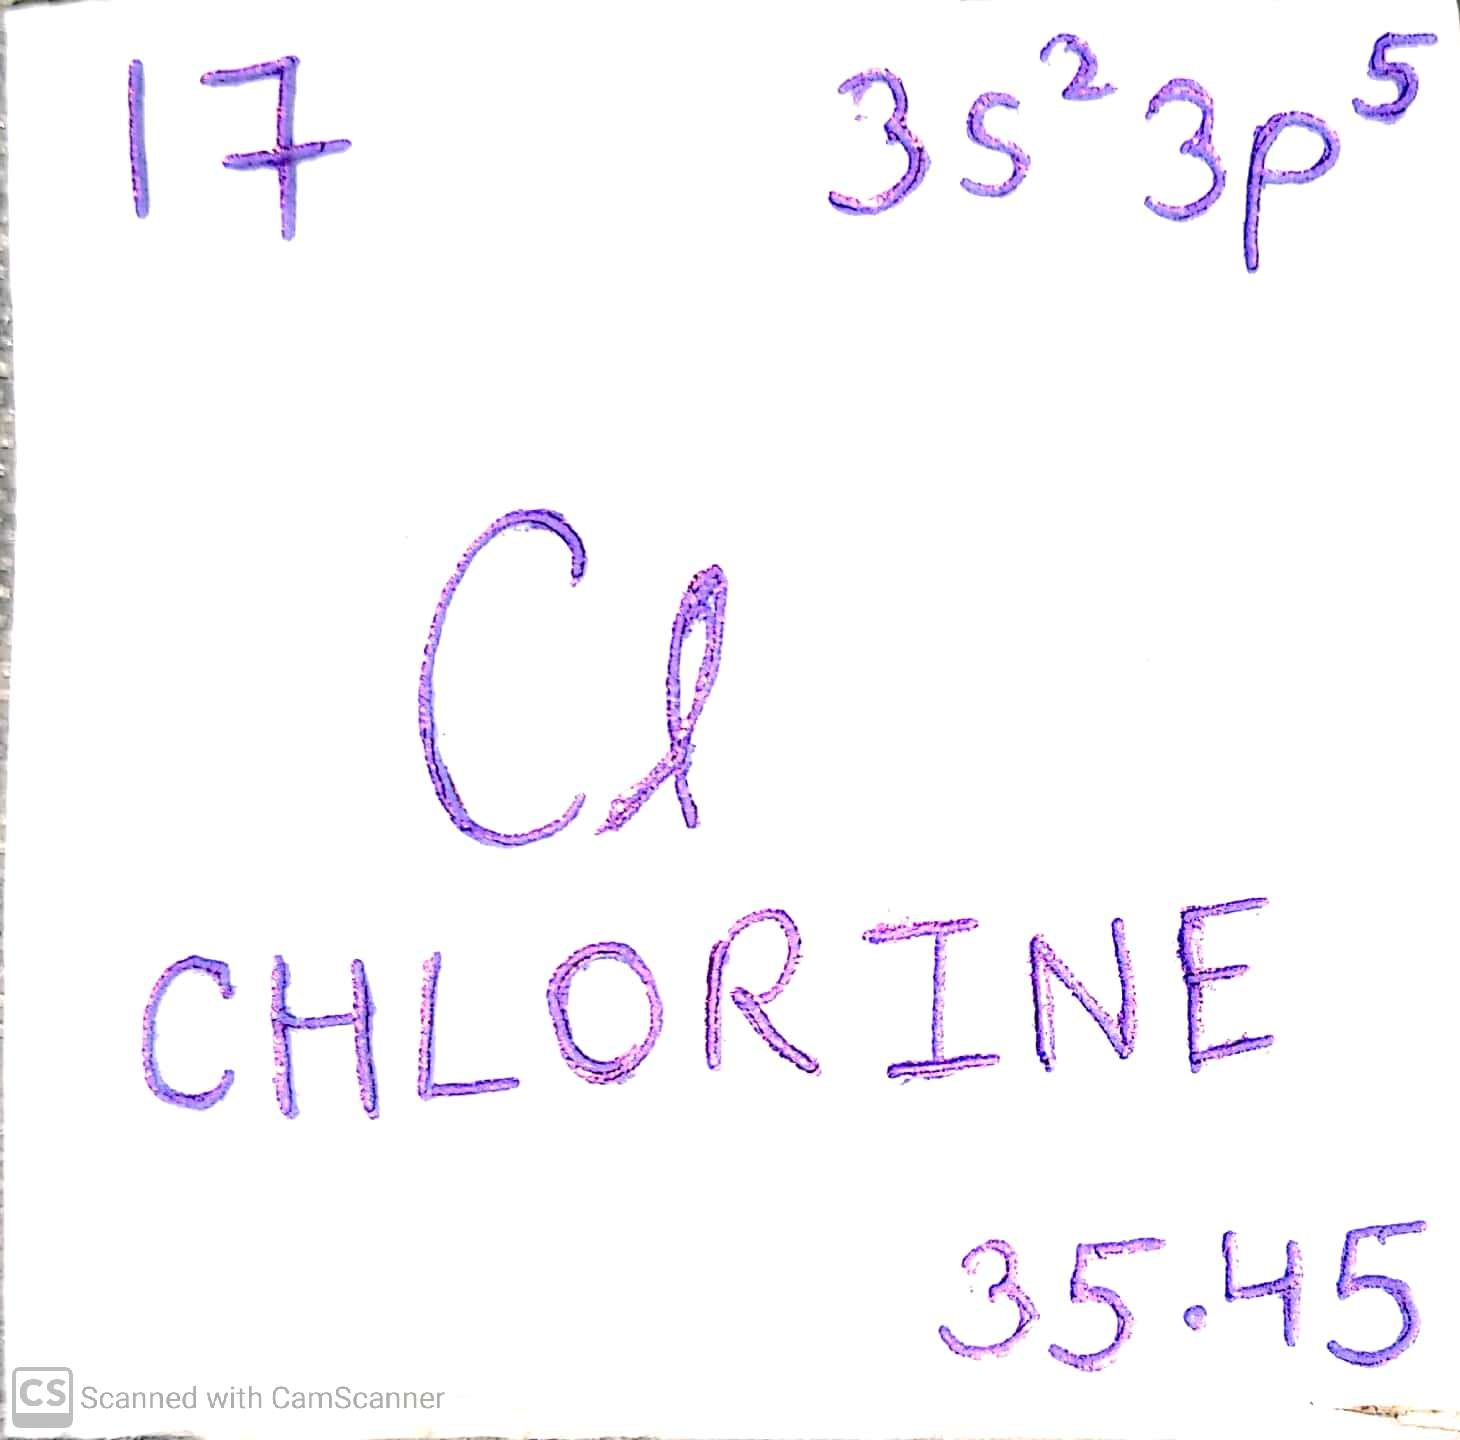 17 3s²3p⁵
Cl
CHLORINE
35.45
CS Scanned with CamScanner